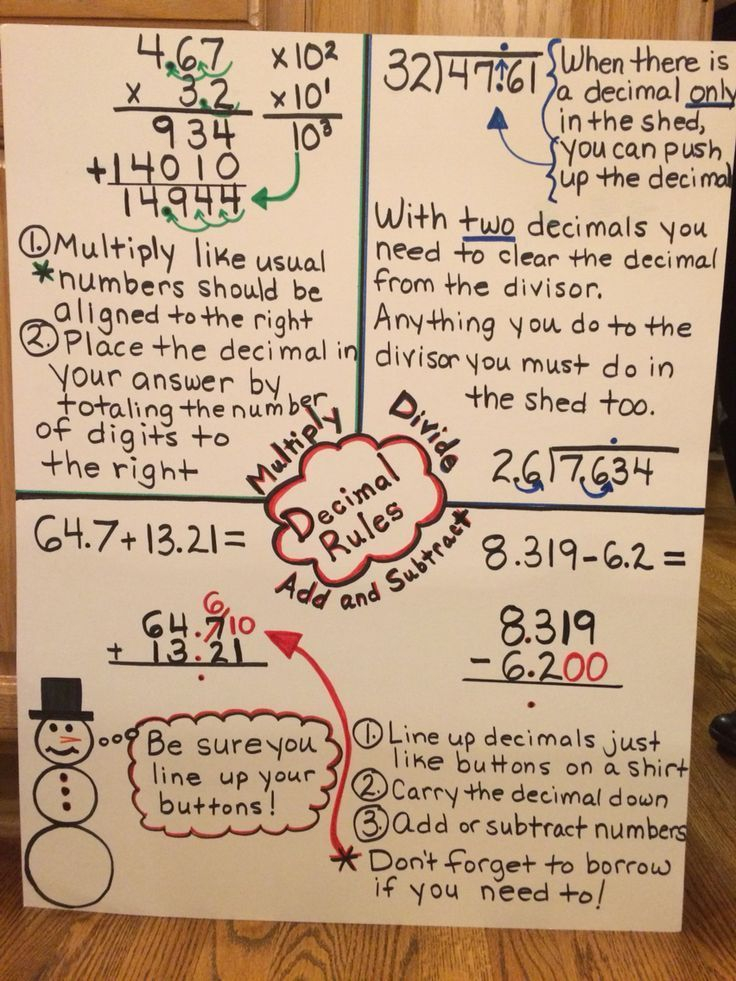 4.67 ×10²
× 3.2 ×10¹
934 10³
+14010
14.944
① Multiply like usual
* numbers should be
aligned to the right
② Place the decimal in
your answer by
totaling the number
of digits to
the right
32)47.61
When there is
a decimal only
in the shed,
you can push
up the decimal
With two decimals you
need to clear the decimal
from the divisor.
Anything you do to the
divisor you must do in
the shed too.
2.6)7.634
Multiply
Divide
Decimal
Rules
Add and Subtract
64.7+13.21=
6
64.710
+ 13.21
.
Be sure you
line up your
buttons!
8.319-6.2=
8.319
- 6.200
.
① Line up decimals just
like buttons on a shirt
② Carry the decimal down
③ Add or subtract numbers
* Don't forget to borrow
if you need to!